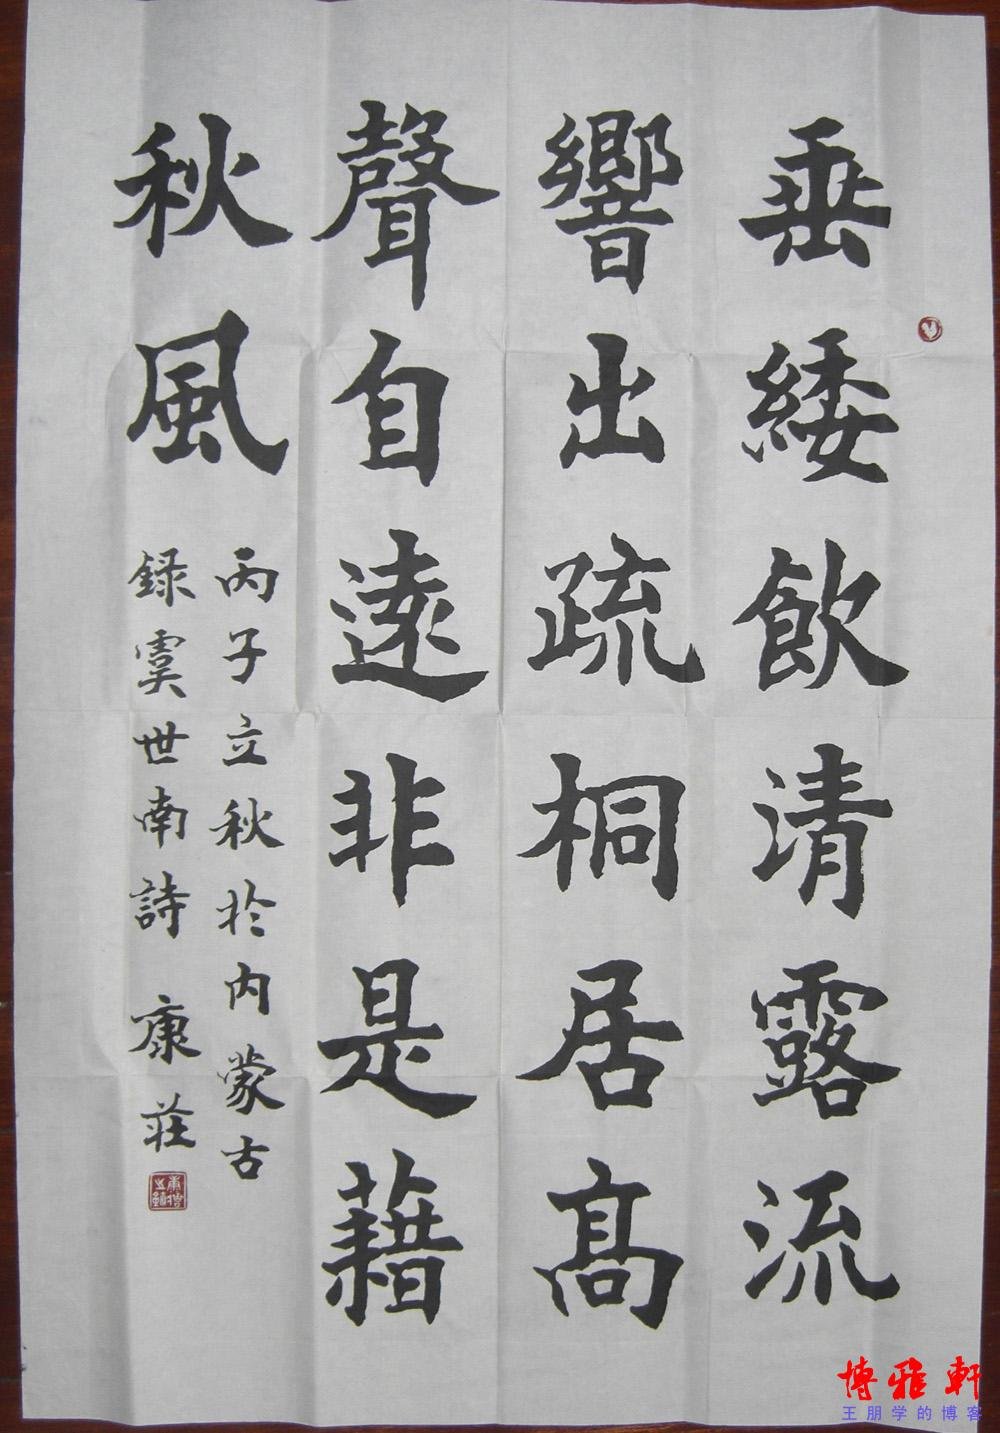 垂緌飲清露流
響出疏桐居高
聲自遠非是藉
秋風
丙子立秋於內蒙古
録虞世南詩 康莊
博雅軒
王朋学的博客